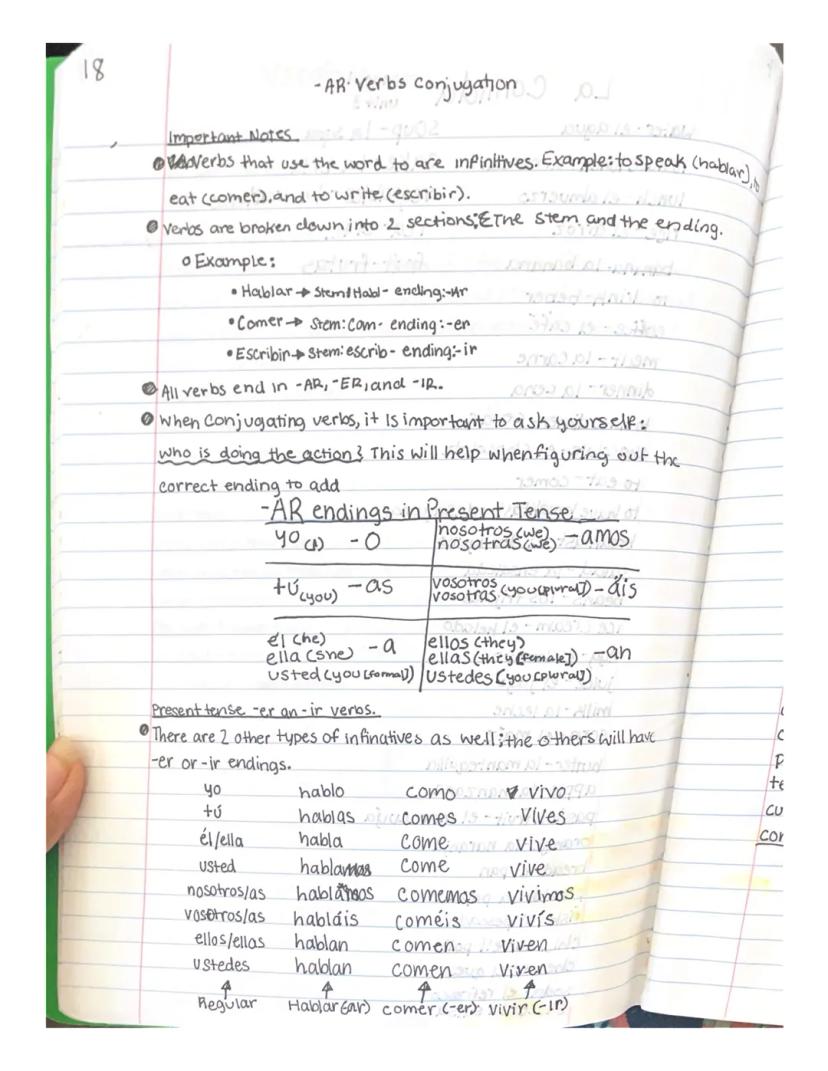 18
-AR Verbs Conjugation
Important Notes
Verbs that use the word to are infinitives. Example: to speak (hablar), to
eat (comer), and to write (escribir).
Verbs are broken down into 2 sections; The stem and the ending.
Example:
Hablar → Stem: Habl- ending: -Ar
Comer → Stem: Com- ending: -er
Escribir → Stem: escrib- ending: -ir
All verbs end in -AR, -ER, and -IR.
When conjugating verbs, it is important to ask yourself:
who is doing the action? This will help when figuring out the
correct ending to add
-AR endings in Present Tense
yo (I) -o nosotros (we) nosotras (we) -amos
tú (you) -as vosotros vosotras (you [plural]) -áis
él (he) ella (she) usted (you [formal]) -a ellos (they) ellas (they [female]) ustedes [you [plural]] -an
Present tense -er an -ir verbs.
There are 2 other types of infinatives as well; the others will have
-er or -ir endings.
yo hablo como vivo
tú hablas comes vives
él/ella habla come vive
usted habla come vive
nosotros/as hablamos comemos vivimos
vosotros/as habláis coméis vivís
ellos/ellas hablan comen viven
ustedes hablan comen viven
↑ ↑ ↑ ↑
Regular Hablar (ar) comer (-er) vivir (-ir)
P
te
cu
cor